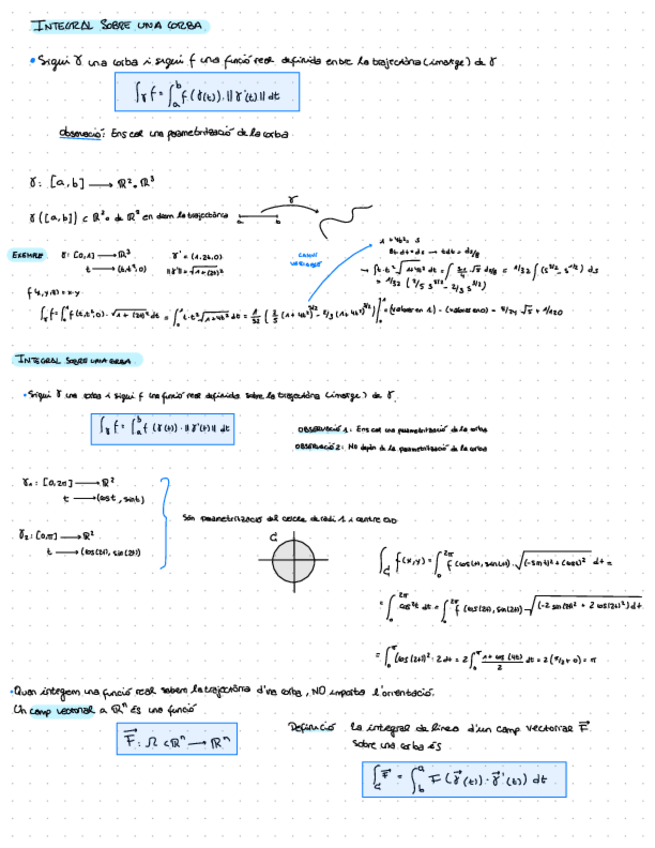 INTEGRAL SOBRE UNA CORBA
• Sigui γ una corba i sigui f una funció real definida entre la trajectòria (imatge) de γ
∫γ f = ∫_a^b f(γ(t)) · ||γ'(t)|| dt
Observació: Ens cal una parametrització de la corba
γ: [a,b] → R² o R³
γ([a,b]) ⊂ R² o de R³ en diem la trajectòria
a b
γ
EXEMPLE γ: [0,1] → R³ γ' = (1,2t,0)
t → (t,t²,0) ||γ'|| = √1+(2t)²
CANVI VARIABLES
1+4t² = s
8t dt = ds → t dt = ds/8
f(x,y,z) = x·y
INTEGRAL SOBRE UNA CORBA
• Sigui γ una corba i sigui f una funció real definida sobre la trajectòria (imatge) de γ.
∫γ f = ∫_a^b f(γ(t)) · ||γ'(t)|| dt
OBSERVACIÓ 1: Ens cal una parametrització de la corba
OBSERVACIÓ 2: No depèn de la parametrització de la corba
γ₁: [0,2π] → R²
t → (cost, sint)
γ₂: [0,π] → R²
t → (cos(2t), sin(2t))
Són parametrització del cercle de radi 1 i centre (0,0)
C
∫_C f(x,y) = ∫_0^{2π} f(cos(t), sin(t)) · √(-sint)² + (cost)² dt =
= ∫_0^{2π} cos²t dt = ∫_0^{2π} f(cos(2t), sin(2t)) √(-2 sin(2t)² + 2 cos(2t)²) dt
= ∫_0^π (cos(2t))² · 2 dt = 2∫_0^π 1+cos(4t)/2 dt = 2(π/2+0) = π
• Quan integrem una funció real sobre la trajectòria d'una corba, NO importa l'orientació.
Un camp vectorial a R^n és una funció
F⃗: Ω ⊂ R^n → R^n
Definició la integral de línea d'un camp vectorial F⃗
sobre una corba és
∫_C F⃗ = ∫_b^a F(γ⃗(t)) · γ⃗'(t)) dt